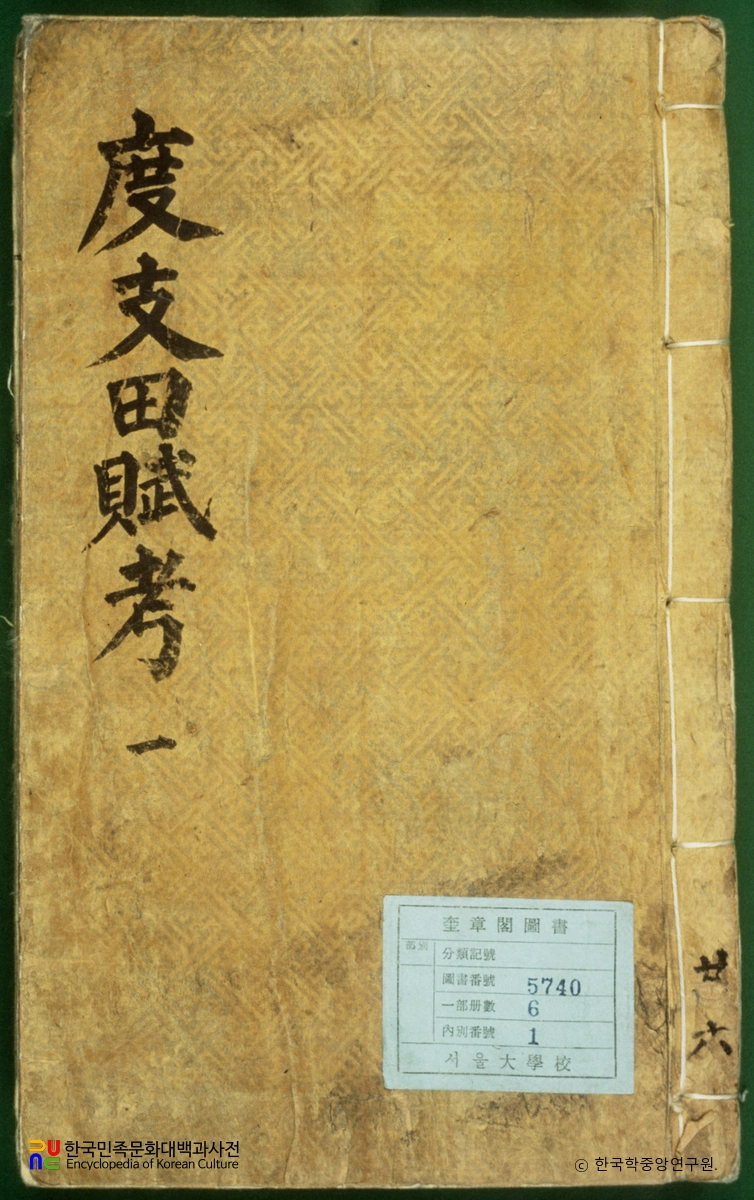 度支田賦考 一
奎章閣圖書
部別
分類記號
圖書番號 5740
一部册數 6
內別番號 1
서울大學校
廿六
한국민족문화대백과사전
Encyclopedia of Korean Culture
© 한국학중앙연구원.